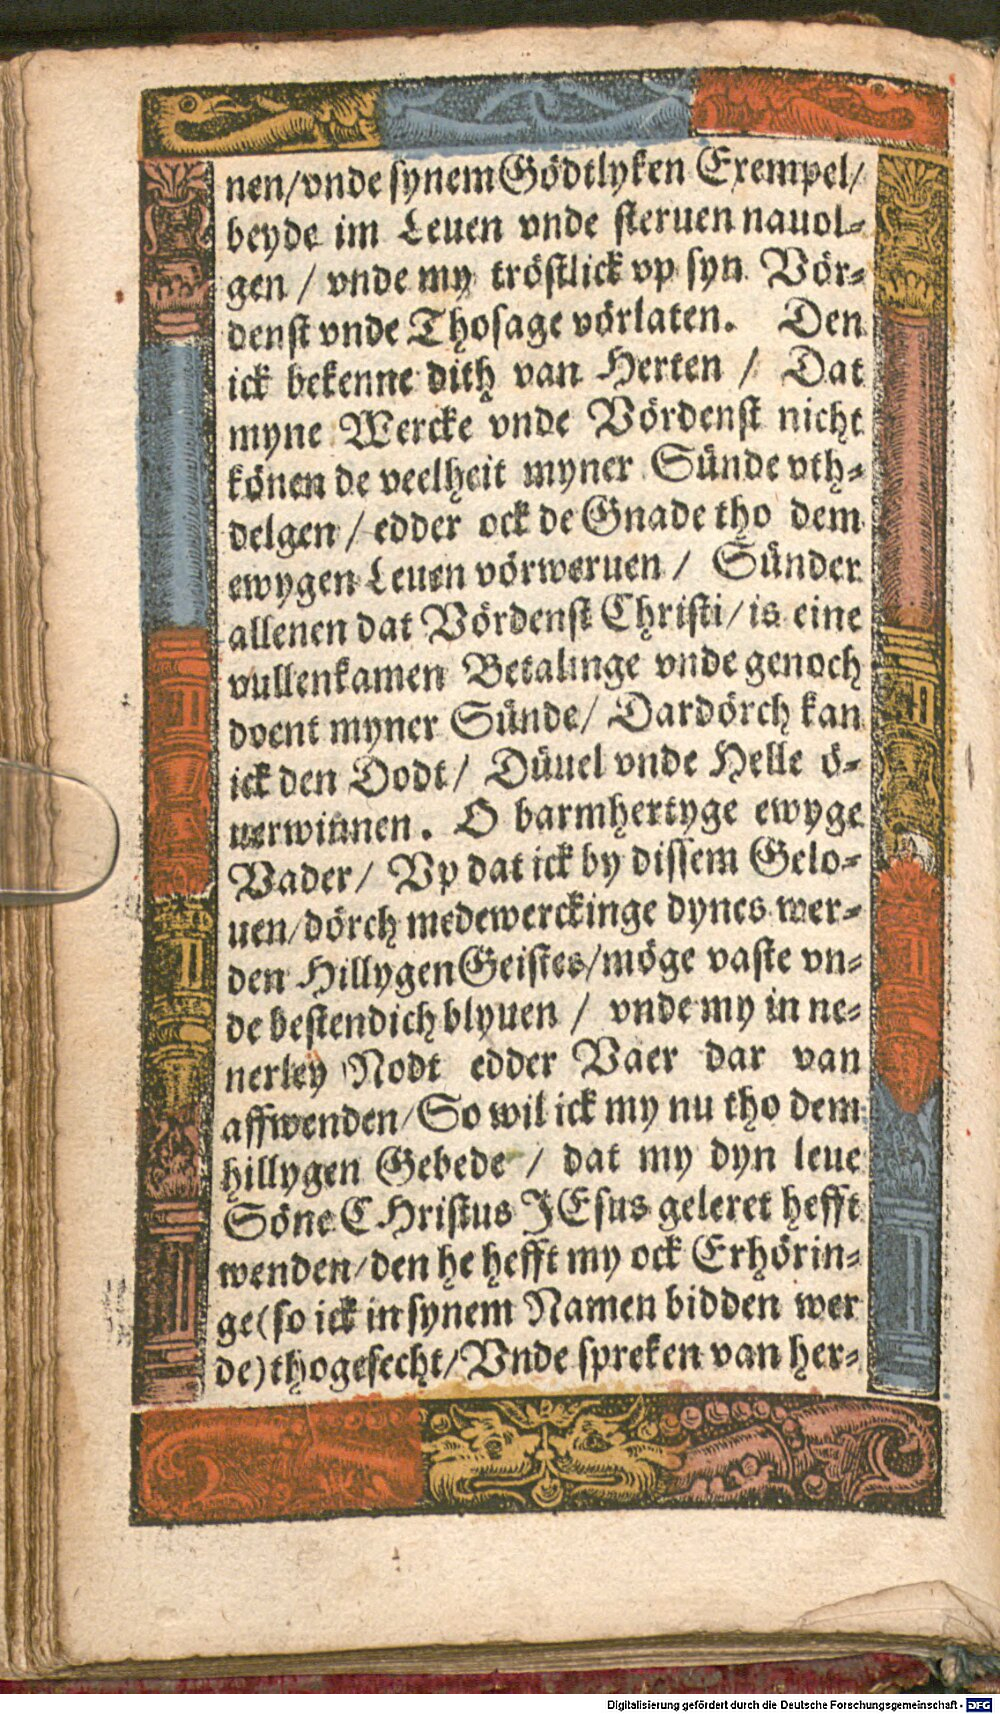 nen/vnde synem Gödtlyken Exempel/
beyde im Leuen vnde steruen nauol-
gen / vnde my tröstlick vp syn Vör-
denst vnde Thosage vörlaten. Den
ick bekenne dith van Herten / Dat
myne Wercke vnde Vördenst nicht
könen de veelheit myner Sünde vth-
delgen / edder ock de Gnade tho dem
ewygen Leuen vörweruen / Sünder
allenen dat Vördenst Christi/ is eine
vullenkamen Betalinge vnde genoch
doent myner Sünde/ Dardörch kan
ick den Dodt/ Düuel vnde Helle ö-
uerwinnen. O barmhertyge ewyge
Vader/ Vp dat ick by dissem Gelo-
uen/dörch medewerckinge dynes wer-
den Hillygen Geistes/möge vaste vn-
de bestendich blyuen / vnde my in ne-
nerley Nodt edder Vaer dar van
affwenden/So wil ick my nu tho dem
hillygen Gebede / dat my dyn leue
Söne CHristus JEsus geleret hefft
wenden/den he hefft my ock Erhörin-
ge(so ick in synem Namen bidden wer
de)thogesecht/Vnde spreken van her-
Digitalisierung gefördert durch die Deutsche Forschungsgemeinschaft - DFG